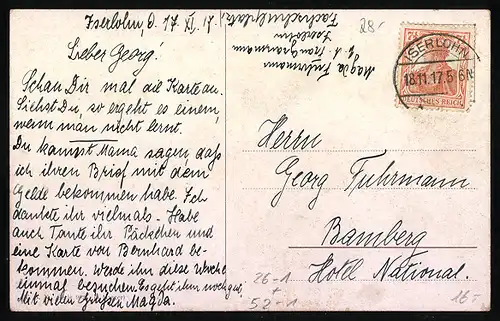 Iserlohn, d. 17. XI. 17.
Lieber Georg!
Schau Dir mal die Karte an.
Siehst Du, so ergeht es einem,
wenn man nicht lernt.
Du kannst Mama sagen, daß
ich ihren Brief mit dem
Gelde bekommen habe. Ich
dankte ihr vielmals. Habe
auch Tante ihr Päckchen und
eine Karte von Bernhard be-
kommen. Werde ihn diese Woche
einmal besuchen. Es geht ihm noch gut.
Mit vielen Grüßen Magda.
Magda Fuhrmann
Iserlohn
Fachschulplatz
28-
ISERLOHN
18.11.17. 5-6 N
DEUTSCHES REICH
7½
Herrn
Georg Fuhrmann
Bamberg
Hotel National.
26-1
+
52-1
16-